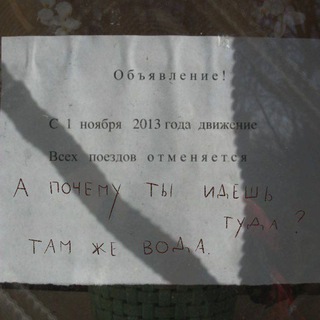 Объявление!
С 1 ноября 2013 года движение
Всех поездов отменяется
А ПОЧЕМУ ТЫ ИДЕШЬ
ТУДА ?
ТАМ ЖЕ ВОДА.